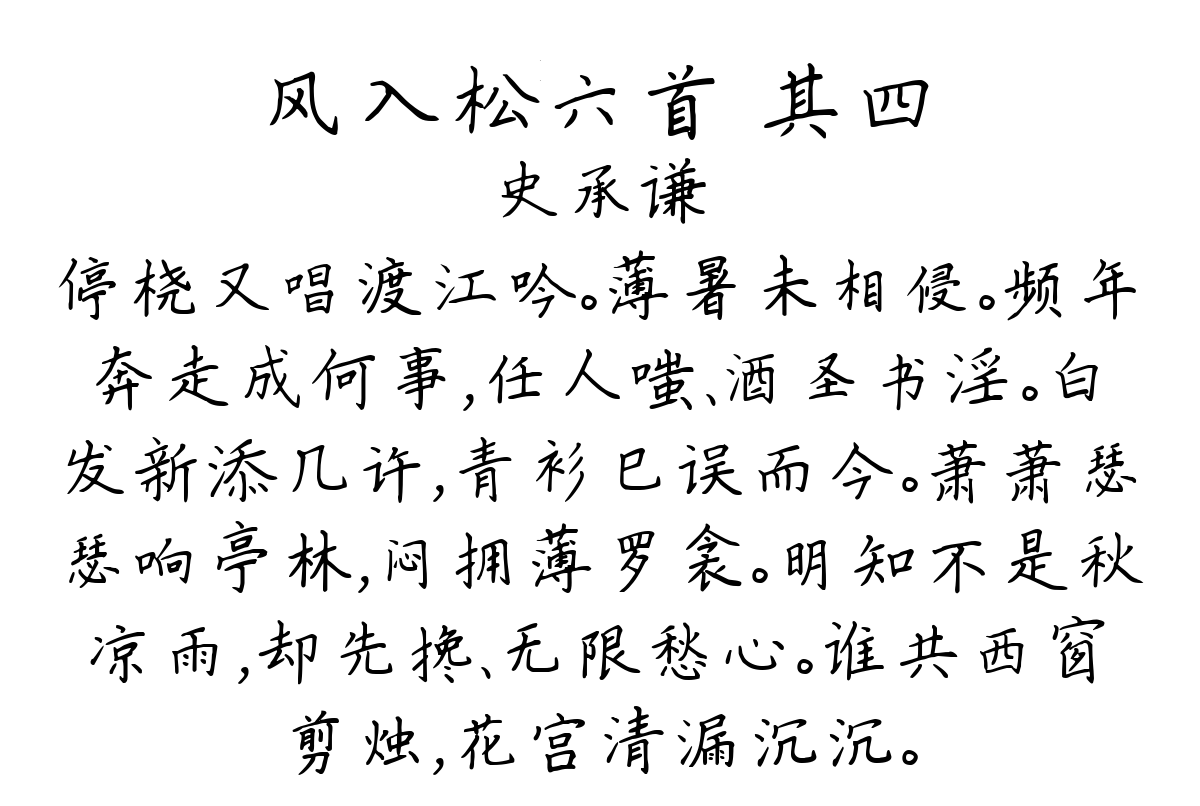 风入松六首 其四
史承谦
停桡又唱渡江吟。薄暑未相侵。频年
奔走成何事,任人嗤、酒圣书淫。白
发新添几许,青衫已误而今。萧萧瑟
瑟响亭林,闷拥薄罗衾。明知不是秋
凉雨,却先搀、无限愁心。谁共西窗
剪烛,花宫清漏沉沉。